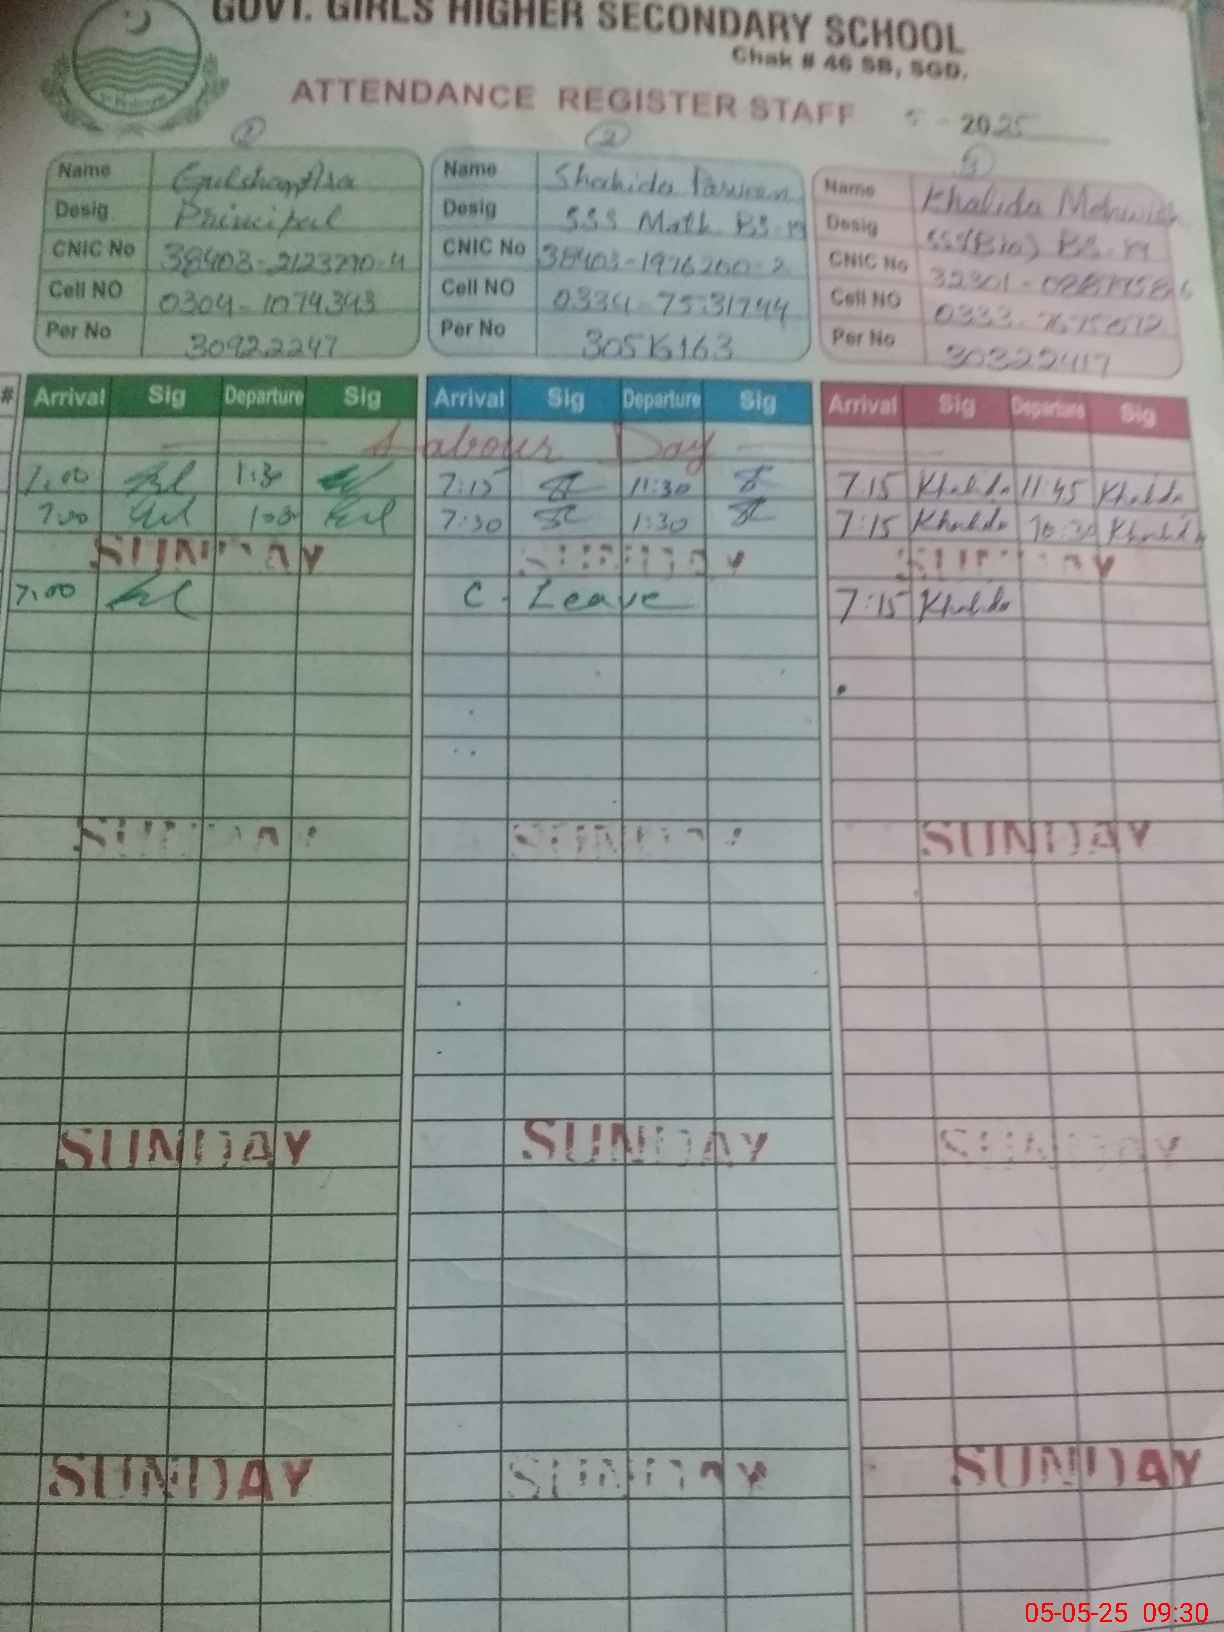 GOVT. GIRLS HIGHER SECONDARY SCHOOL
Chak # 46 SB, SGD.
ATTENDANCE REGISTER STAFF 5 - 2025
Name Gulshan Ara
Desig Principal
CNIC No
Cell NO 0304-1074343
Per No 30922247
Name Shahida Parveen
Desig SSS Math BS-19
CNIC No 38403-1976260-2
Cell NO 0334-7531744
Per No
Name Khalida Mehwish
Desig SSS(Bio) BS-19
CNIC No
Cell NO
Per No 30322417
# Arrival Sig Departure Sig Arrival Sig Departure Sig Arrival Sig Departure Sig
Labour Day
7:00 1:30 7:15 11:30 7:15 Khalida 11:45 Khalida
7:00 1:30 7:30 1:30 7:15 Khalida 10:30 Khalida
SUNDAY SUNDAY SUNDAY
7:00 C. Leave 7:15 Khalida
SUNDAY SUNDAY SUNDAY
SUNDAY SUNDAY SUNDAY
SUNDAY SUNDAY SUNDAY
05-05-25 09:30